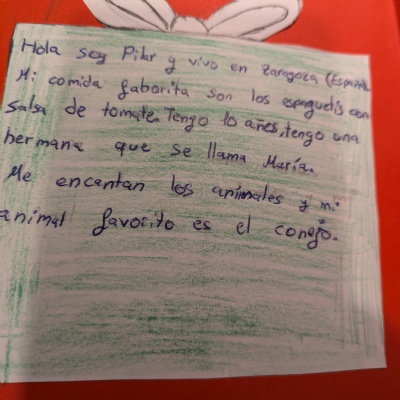 Hola soy Pilar y vivo en Zaragoza (España
Mi comida faborita son los espaguetis con
salsa de tomate. Tengo 10 años, tengo una
hermana que se llama María.
Me encantan los animales y mi
animal favorito es el conejo.